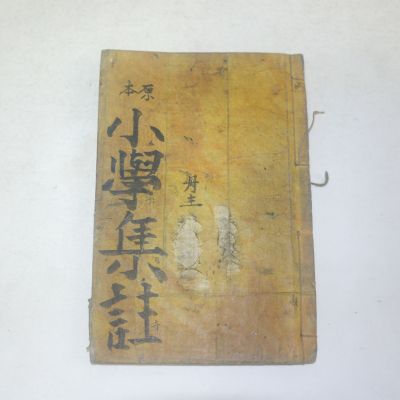 原本
小學集註
冊主